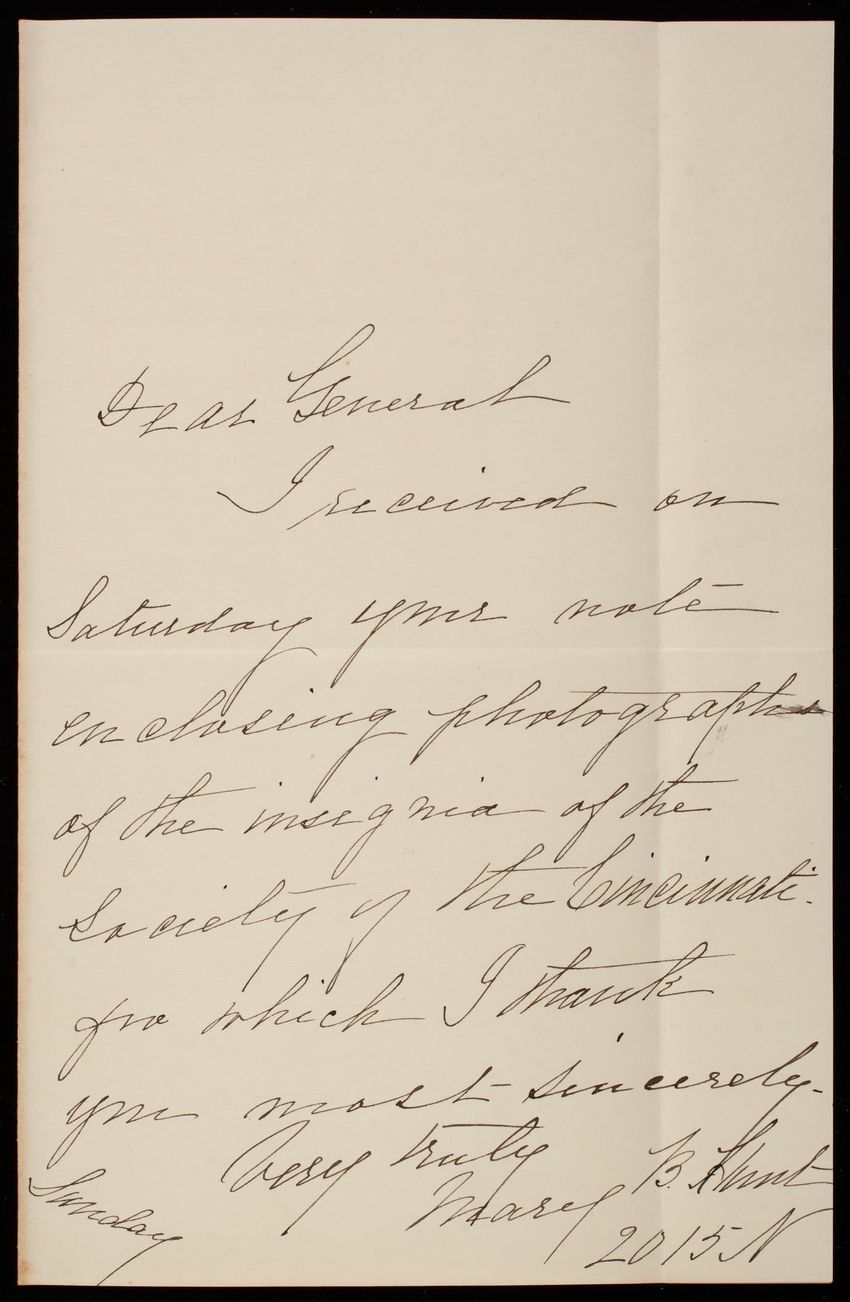 Dear General
I received on
Saturday your note
enclosing photographs
of the insignia of the
Society of the Cincinnati.
for which I thank
you most sincerely.
Very truly
Mary B. Hunt
Sunday
2015 N